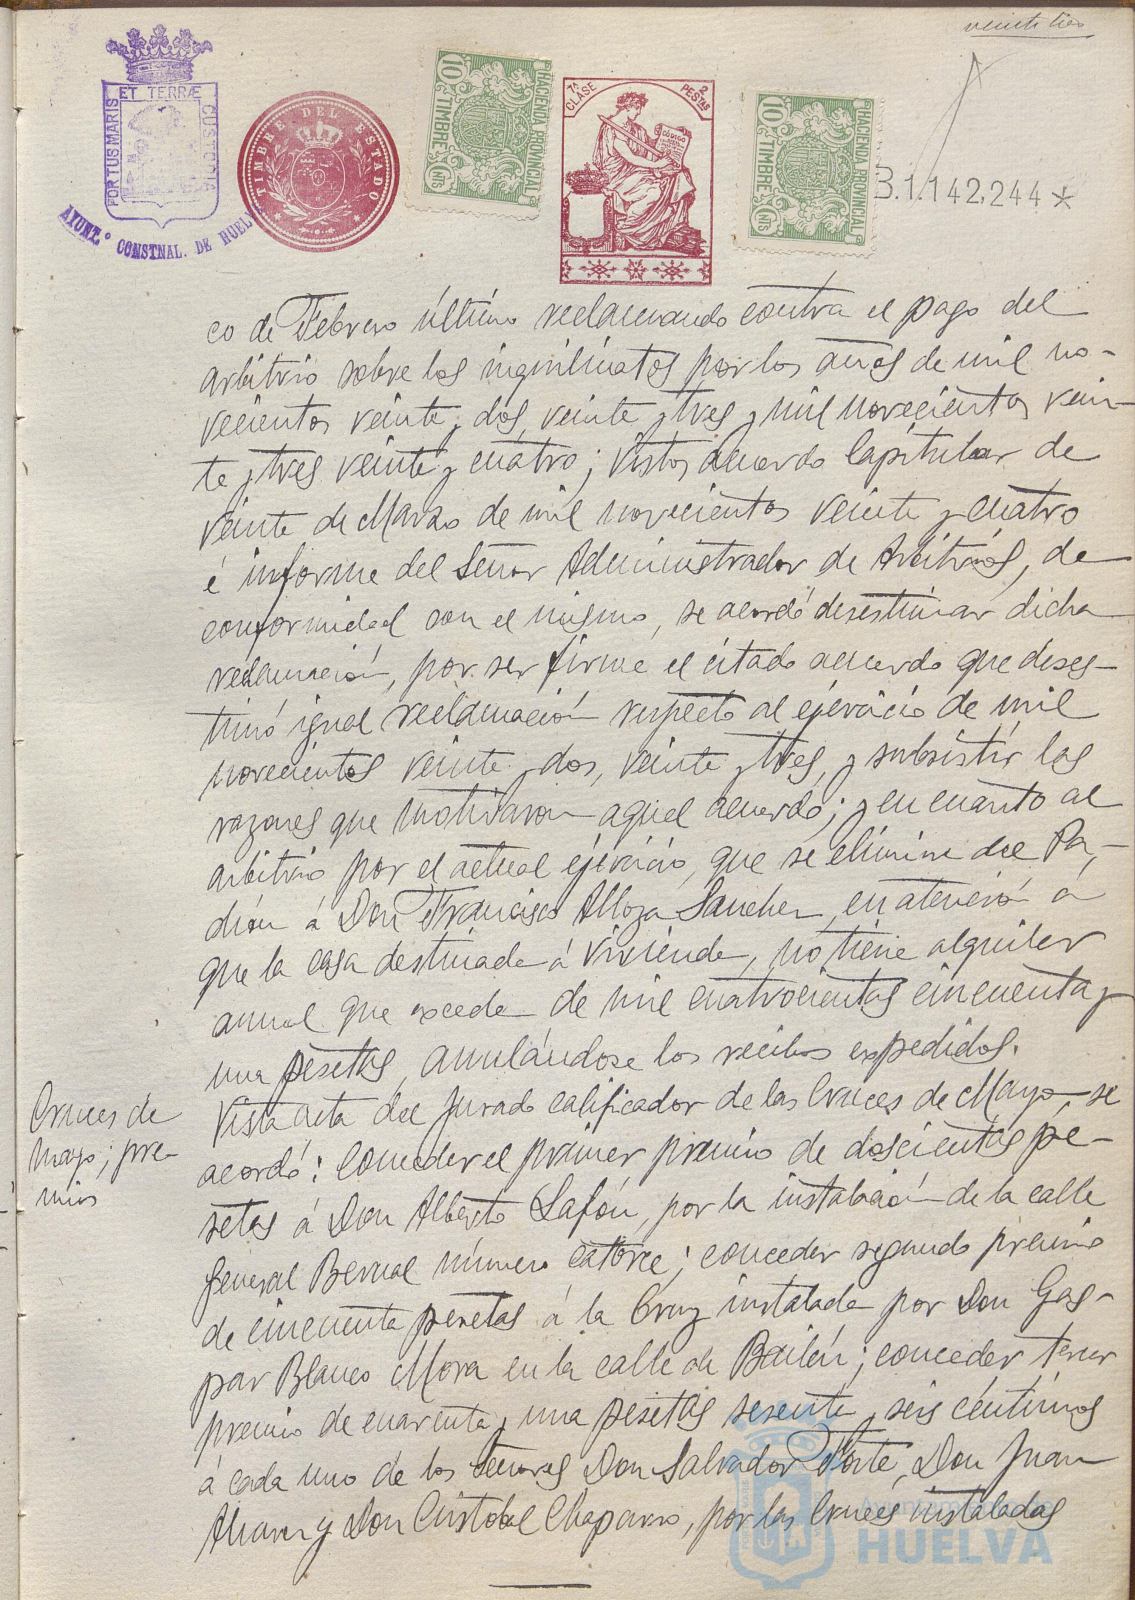 veinte tres
PORTUS MARIS ET TERRÆ CUSTODIA
AYUNT.º CONSTNAL. DE HUELVA
TIMBRE DEL ESTADO
HACENDA PROVINCIAL
10 CTS TIMBRE
7ª CLASE 2 PESTAS
CÓDIGO
HACENDA PROVINCIAL
10 CTS TIMBRE
B.1.142,244*
co de Febrero último reclamando contra el pago del
arbitrio sobre los inquilinatos por los años de mil no-
vecientos veinte y dos, veinte y tres y mil novecientos vein-
te y tres veinte y cuatro; vistos acuerdo Capitular de
veinte de Marzo de mil novecientos veinte y cuatro
é informe del Señor Administrador de Arbitrios, de
conformidad con el mismo, se acordó desestimar dicha
reclamación, por ser firme el citado acuerdo que deses-
timó igual reclamación respecto al ejercicio de mil
novecientos veinte y dos, veinte y tres, y subsistir las
razones que motivaron aquel acuerdo; y en cuanto al
arbitrio por el actual ejercicio, que se elimine del Pa-
drón á Don Francisco Alloza Sanchez, en atención á
que la casa destinada á vivienda, no tiene alquiler
anual que exceda de mil cuatrocientas cincuenta y
una pesetas, anulándose los recibos expedidos.
Cruces de
mayo; pre-
mios
Vista acta del Jurado calificador de las Cruces de Mayo, se
acordó: Conceder el primer premio de doscientas pe-
setas á Don Alberto Lafón, por la instalación de la calle
General Bernal número catorce; conceder segundo premio
de cincuenta pesetas á la Cruz instalada por Don Gas-
par Blanco Mora en la calle de Bailén; conceder tercer
premio de cuarenta y una pesetas sesenta y seis céntimos
á cada uno de los Señores Don Salvador Forte, Don Juan
Alvarez y Don Cristobal Chaparro, por las Cruces instaladas
Ayuntamiento de
HUELVA